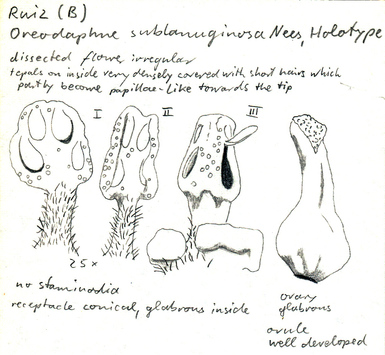 Ruiz (B)
Oreodaphne sublanuginosa Nees, Holotype
dissected flower irregular
tepals on inside very densely covered with short hairs which
partly become papillae-like towards the tip
I II III
25×
no staminodia
receptacle conical, glabrous inside
ovary
glabrous
ovule
well developed